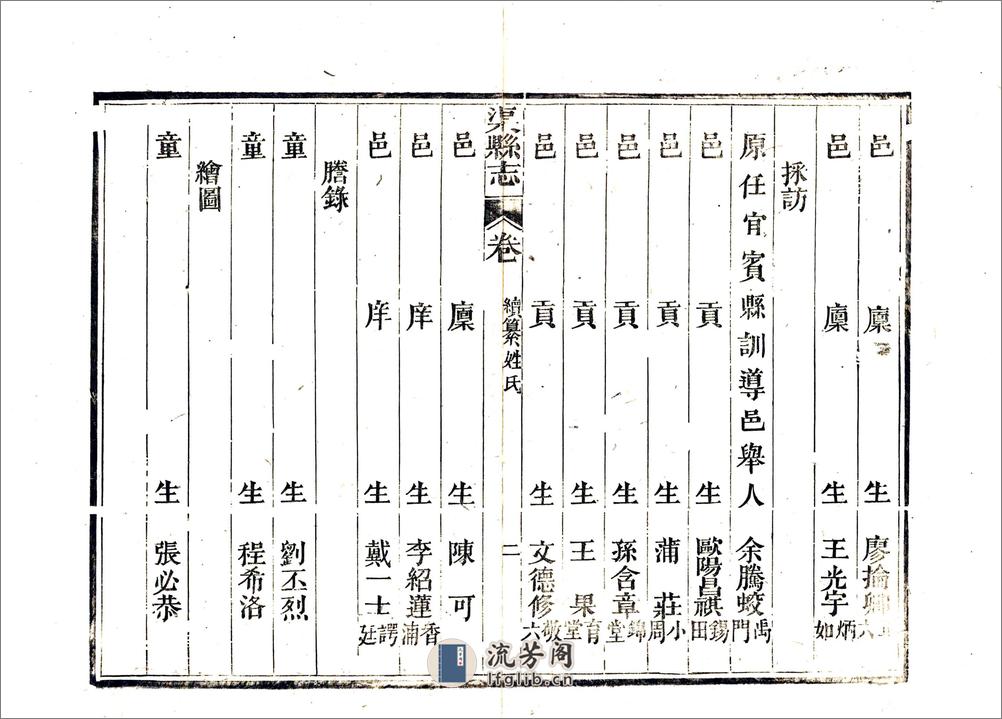 邑廩生廖掄
邑廩生王光宇炳如
採訪
原任宜賓縣訓導邑舉人余騰蛟禹門
邑貢生歐陽昌祺錫田
邑貢生蒲莊小周
邑貢生孫含章錦堂
邑貢生王果育堂
邑貢生文德修敬六
渠縣志
卷
續纂姓氏
二
邑廩生陳可
邑庠生李紹蓮香浦
邑庠生戴一士諤廷
謄錄
童生劉丕烈
童生程希洛
繪圖
童生張必恭
流芳阁
lfglib.cn